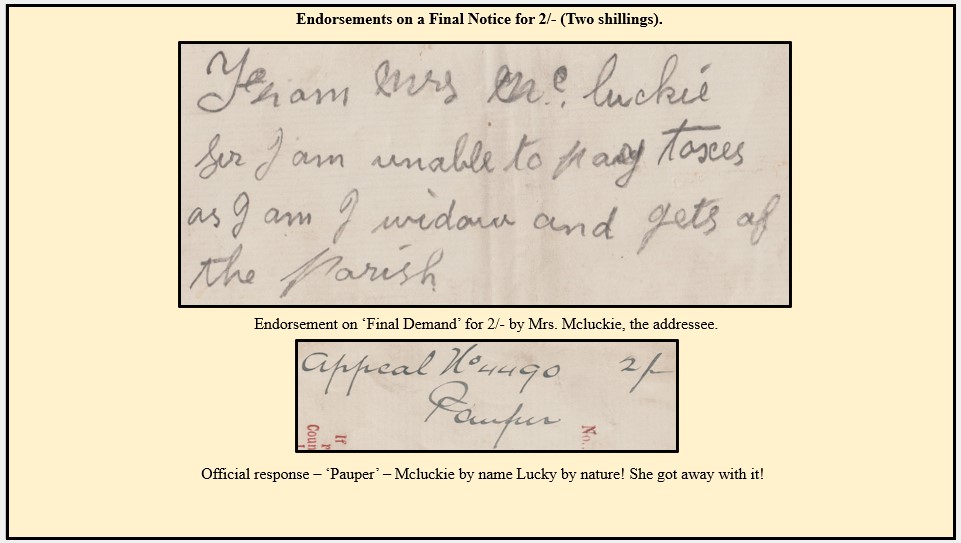 Endorsements on a Final Notice for 2/- (Two shillings).
From Mrs Mc. luckie
Sir I am unable to pay taxes
as I am I widow and gets of
the Parish
Endorsement on ‘Final Demand’ for 2/- by Mrs. Mcluckie, the addressee.
Appeal No 4490 2/-
Pauper
If
Coun
No.
Official response – ‘Pauper’ – Mcluckie by name Lucky by nature! She got away with it!